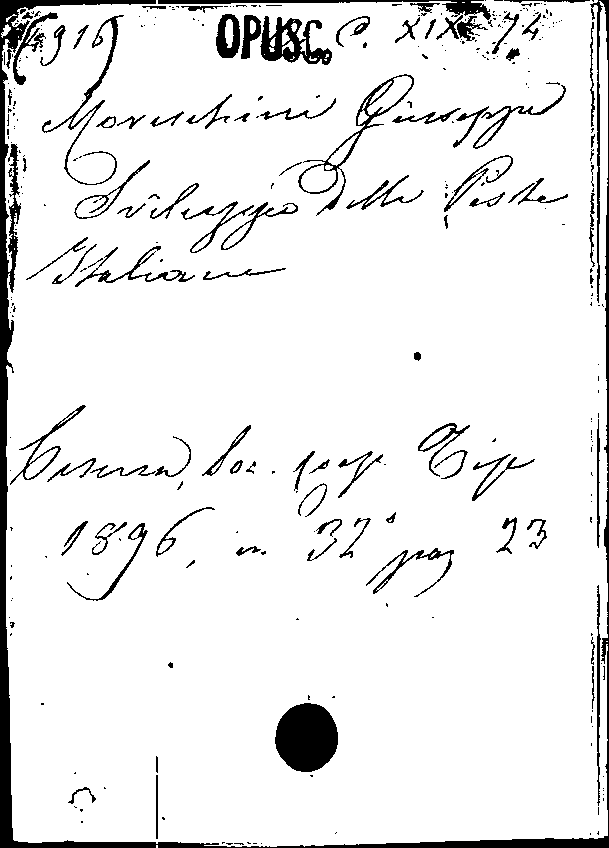 (4916) OPUSC. C. XIX 74
Moreschini Giuseppe
Sviluppo delle Poste
Italiane
Cesena, Soc. coop. Tip
1896, in 32° pag 23